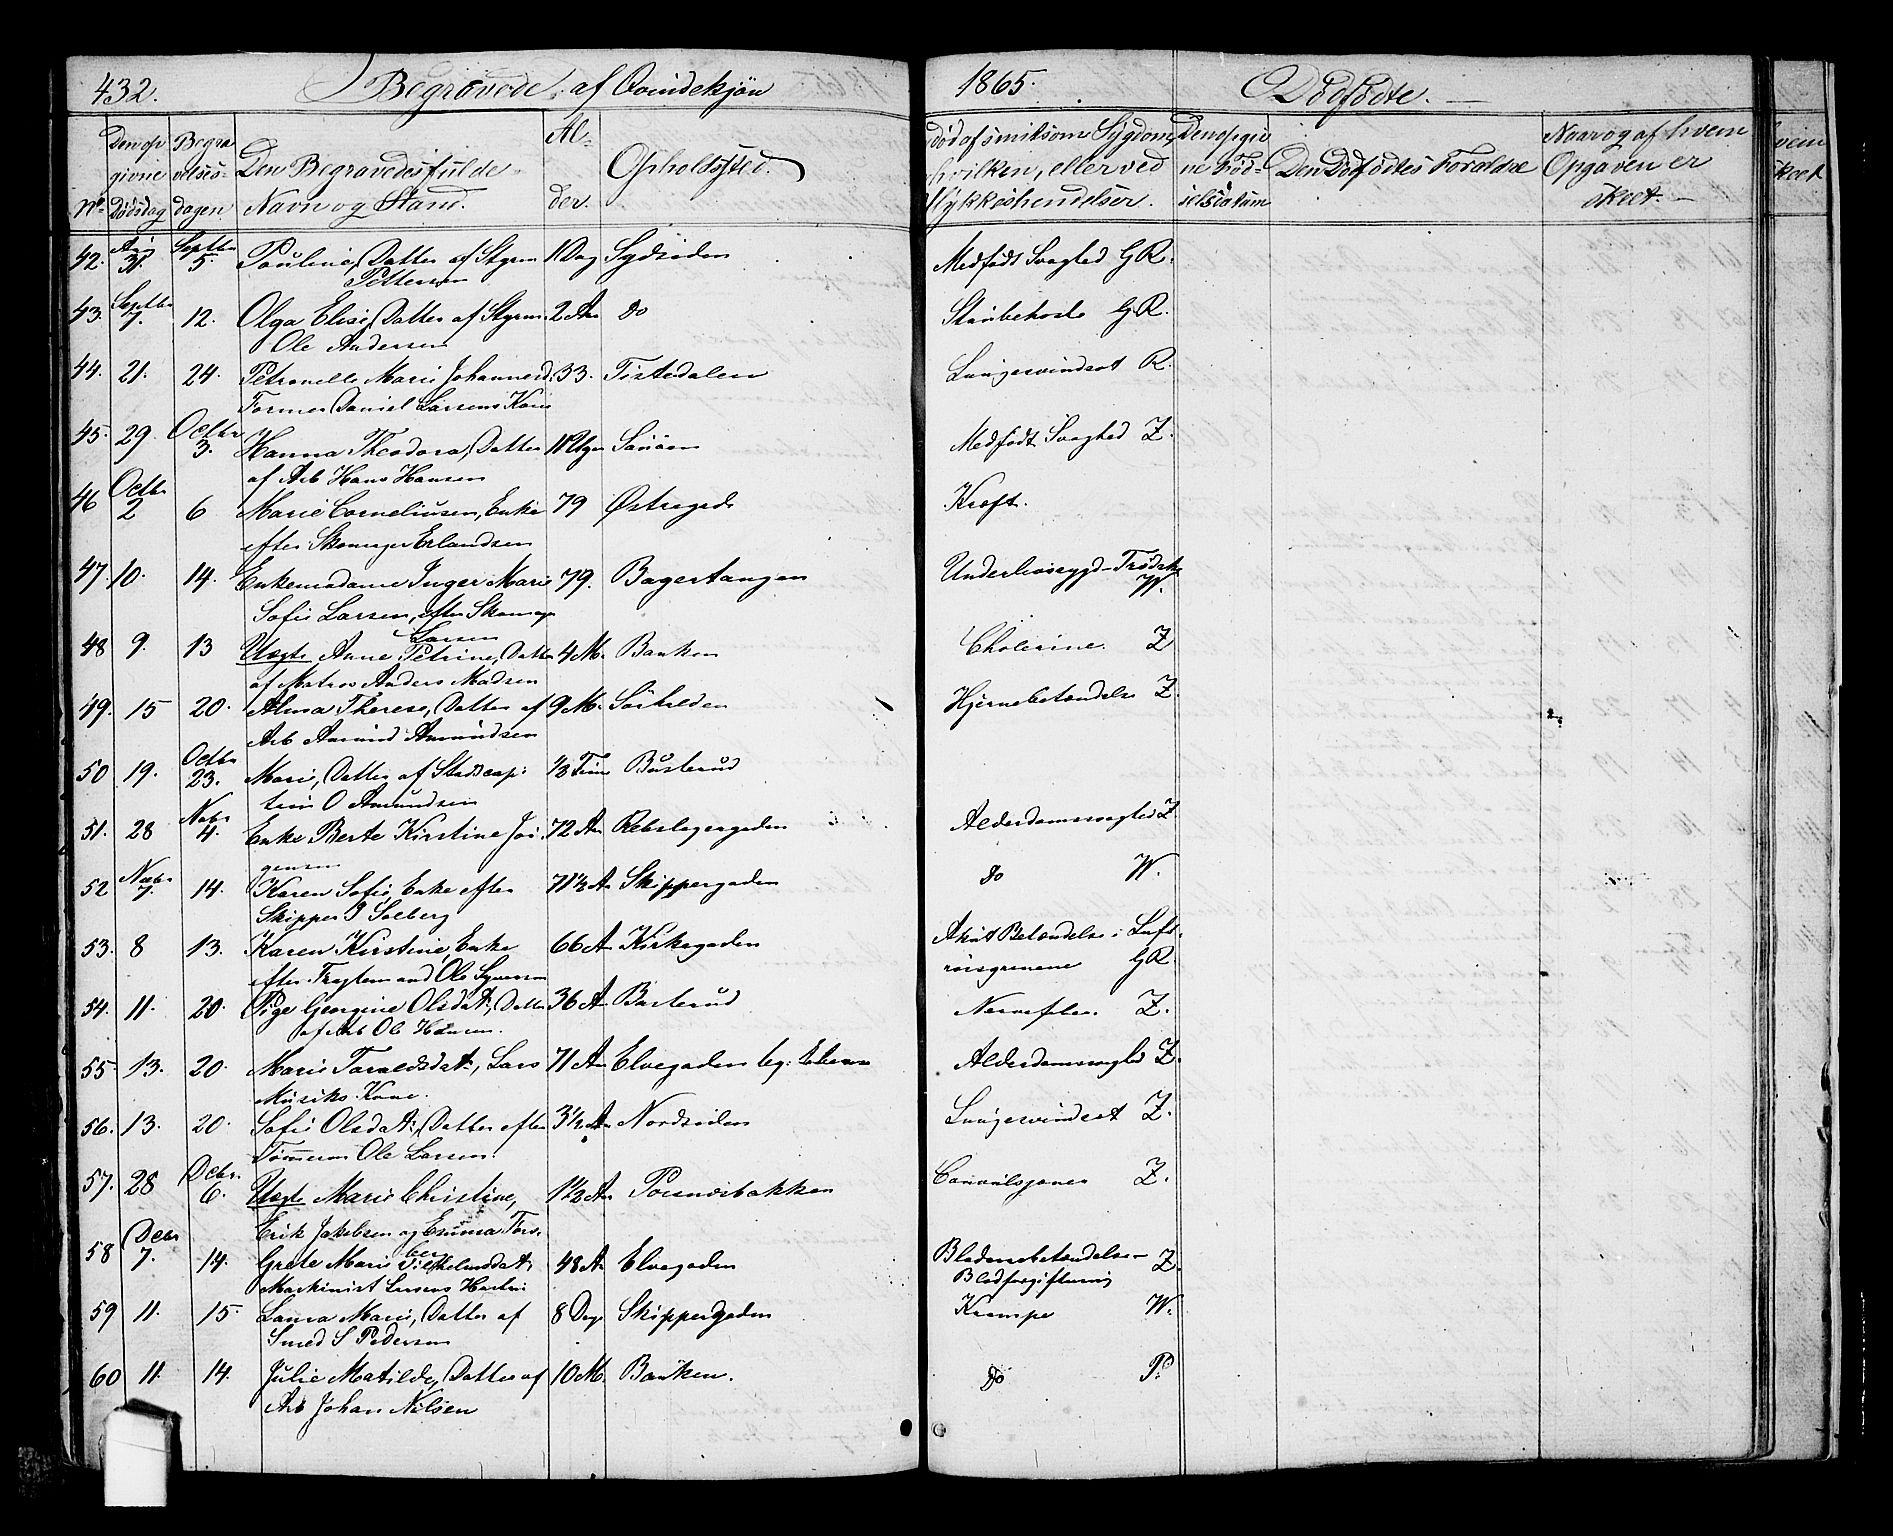 432. Begravede af Qvindekjön 1865. Dödfödte.
No. Den opgivne Dödsdag Begravelsesdagen Den Begravedes fulde Navn og Stand. Alder. Opholdssted. Död af smitsom Sygdom, hvilken, eller ved Ulykkeshendelser. Den opgivne Födselsdatum Den Dödfödtes Forældre Naar og af hvem Opgaven er skeet.
42. Aug 31. Septbr 5. Pauline, Datter af Styrm 1 Dag Sydsiden Medfødt Svaghed GR.
Pettersen
43. Septbr 7. 12. Olga Elise, Datter af Styrm. 2 Aar do Strubehoste GR.
Ole Andersen
44. 21. 24. Petronelle Marie Johannesd. 33. Tistedalen Lungesvindsot R.
Former Daniel Larsens Kone
45. 29. Octbr 3. Hanna Theodora, Datter Medfødt Svaghed Z.
af Arb Hans Hansen
46 Octbr 2 6 Marie Corneliusen, Enke 79 Østregade Kræft.
efter Skomager Erlandsen
47. 10. 14. Enkemadame Inger Marie 79. Bagertangen Underlivssygd
Sofie Larsen, efter Skomager W.
Larsen
48 9. 13 Uægte Anne Petrine, Datter 4 M. Banken Cholerine. Z
af Matros Anders Madsen
49. 15 20. Alma Therese, Datter af 9 M. Hjernebetændelse Z.
Arb Amund Amundsen
50 19. Octbr 23. Marie, Datter af 1/3 Time Busterud
O Amundsen
51. 28 Novbr 4. Enke Berte Kirstine Jör 72 Aar Rebslagergaden Alderdomssvaghed Z.
gensen
52 Novbr 7. 14. Karen Sofie, Enke efter 71 1/2 A Skippergaden do W.
Skipper P Solberg
53. 8 13. Karen Kirstine, Enke 66 A Kirkegaden Akut Betændelse i Luft
efter Fragtemand Ole Syversen rörsgrenene GR.
54. 11. 20. Pige Georgine Olsdat:, Datter 36 A Busterud Nervefeber Z.
af Arb Ole Hansen.
55 13. 20. Marie Taraldsdat:, Lars 71 A Elvegaden Alderdomssvaghed Z.
Musiks Kone.
56. 13. 20. Sofie Olsdat:, Datter efter 3 1/2 Aar Nordsiden Lungesvindsot Z.
Tömmerm Ole Larsen.
57. 28 Decbr. 6. Uægte Marie Christine, 1 1/2 A Z.
Erik Jakobsen og Emma Tor
ber
58 Decbr 7. 14. Grete Marie Vilhelmsdat: 48 A Elvegaden Blærebetændelse Z.
Maskinist Larsens Hustru Blodforgiftning
59 11. 15 Laura Marie, Datter af 8 Dage Skippergaden Krampe W.
Smed S Pedersen
60 11. 14. Julie Matilde, Datter af 10 M. Banken. do P.
Arb Johan Nilsen